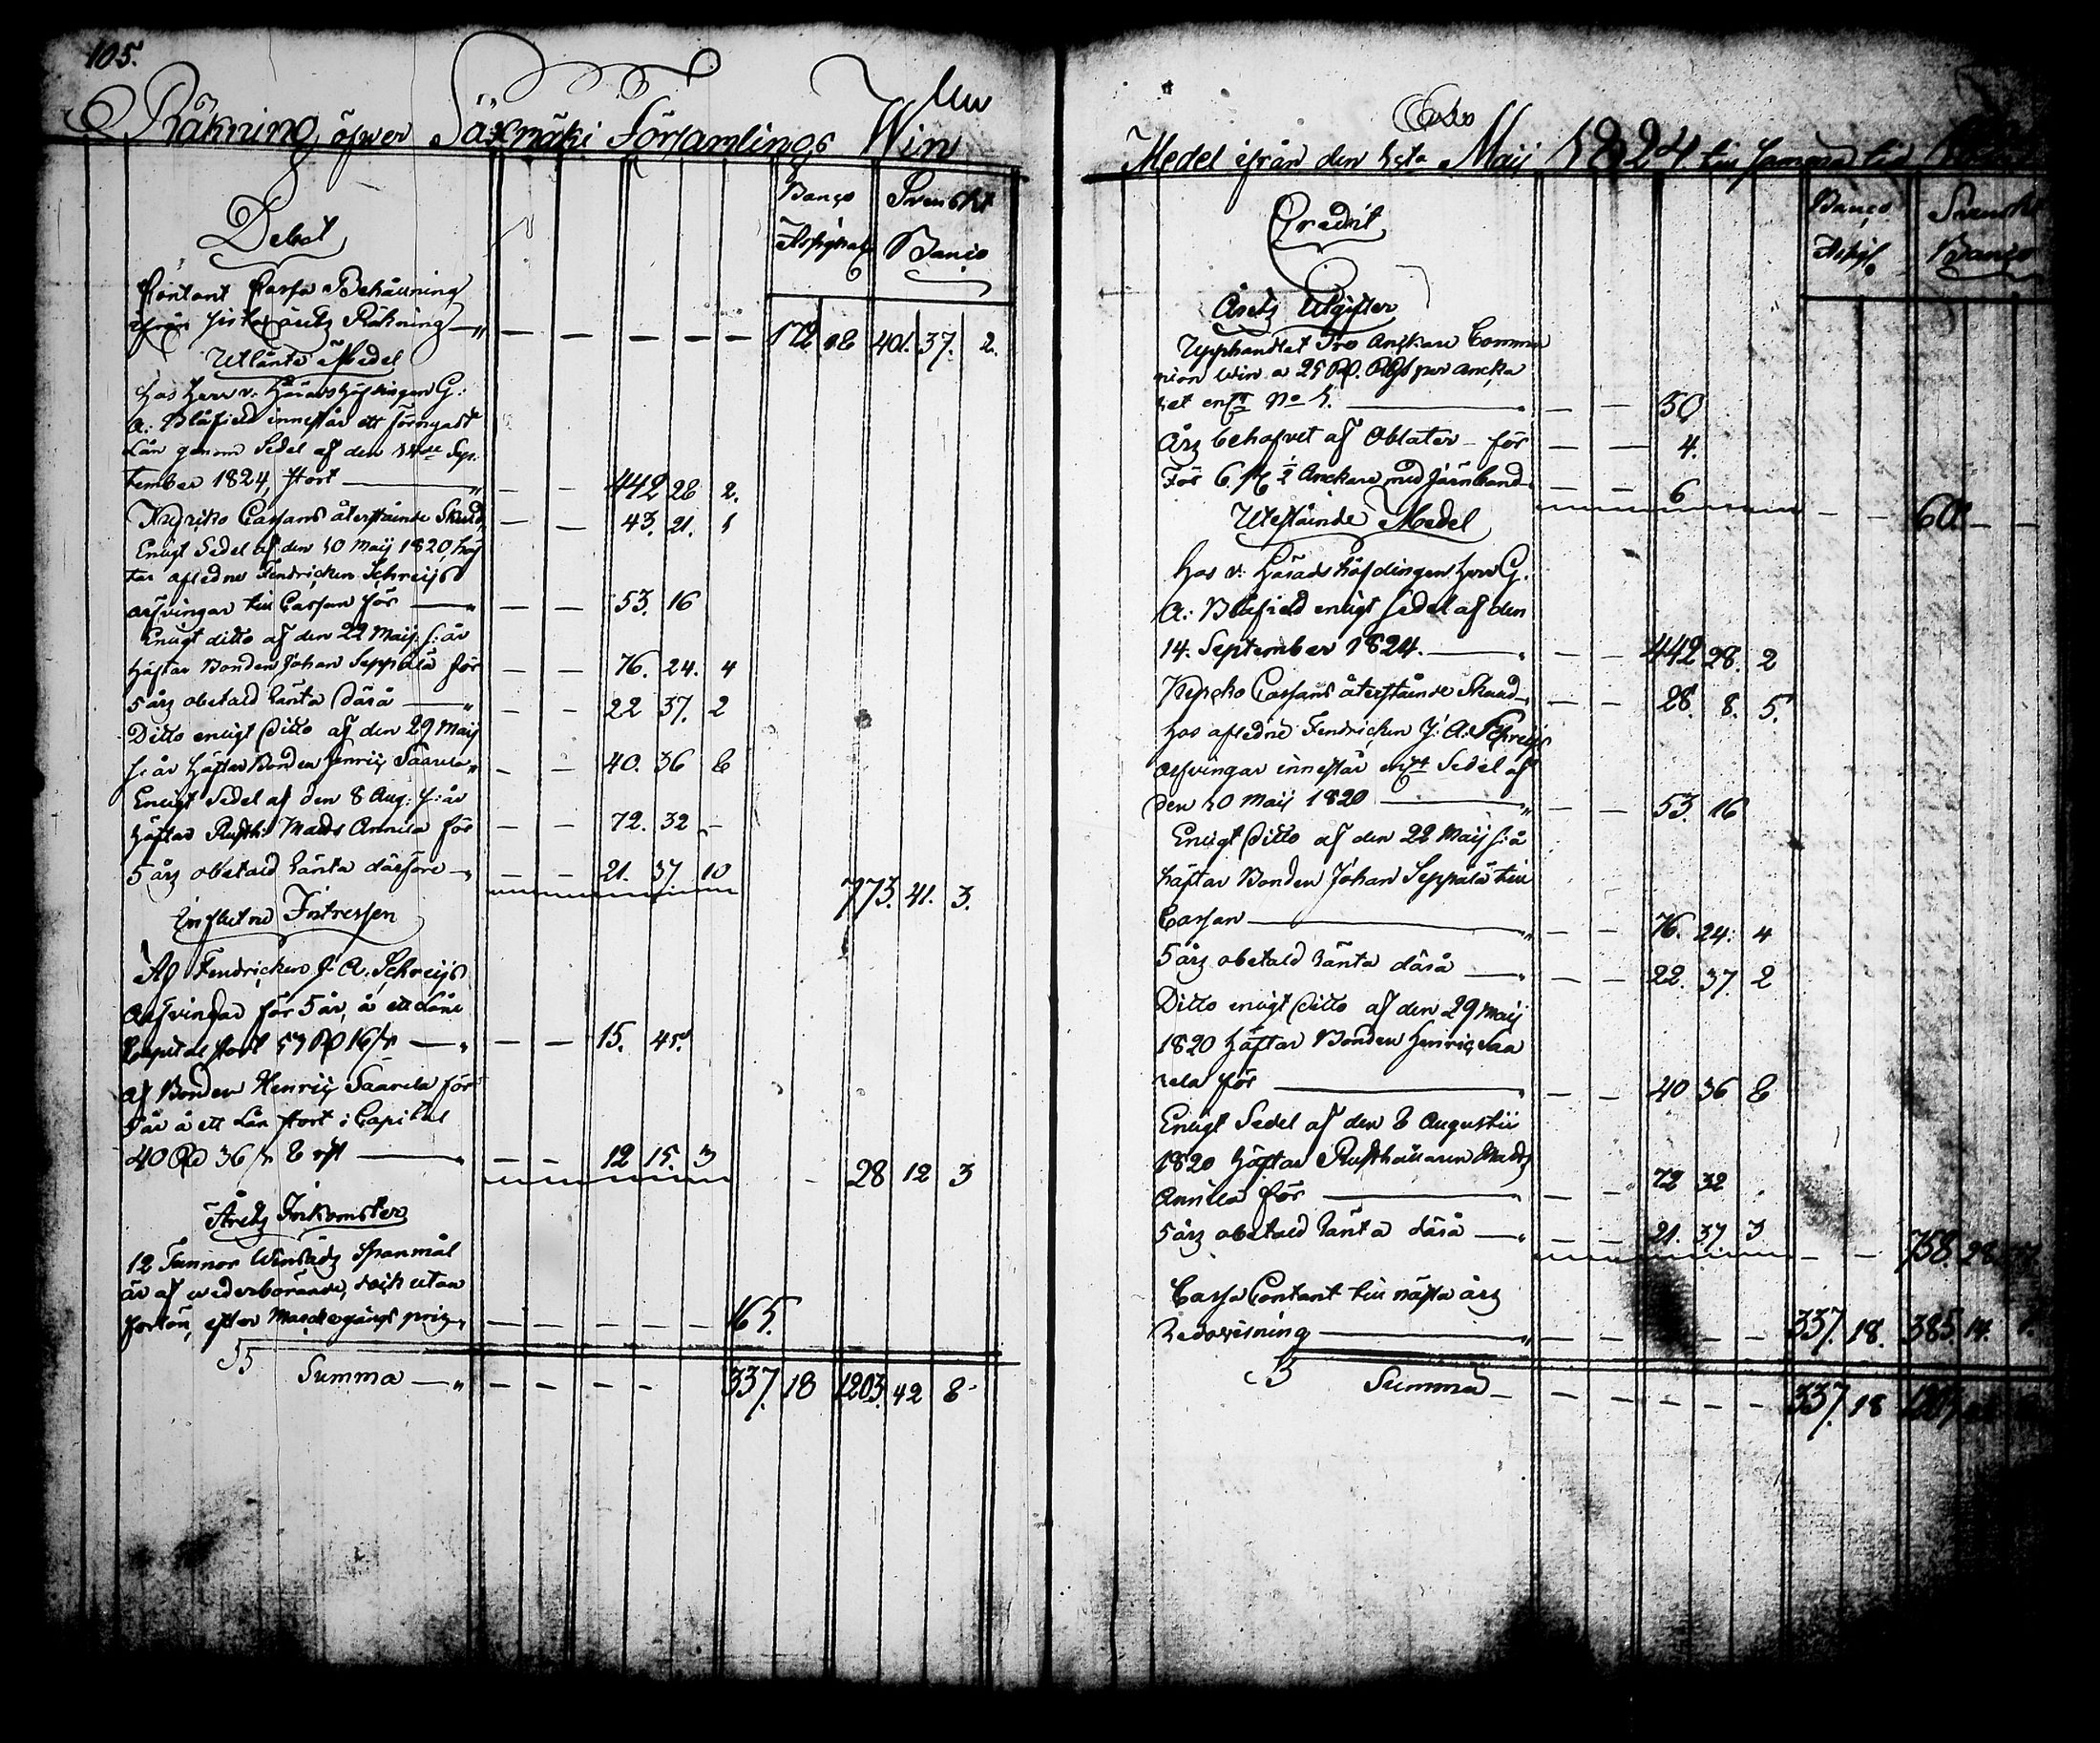 105.
Räkning öfwer Sääxmäki Församlings Win
Debet
Banco Svenskt
Assignat Banco
Contant Cassa Behållning
ifrån sistl. åretz Räkning — „ — — — — — 172 18 401. 37. 2.
Utlänte Medel
Hos Herr v. Häradshöfdingen G:
A: Blåfield innestår ett förnyadt
Lån genom Sedel af den 14de Sep-
tember 1824, stort — „ — — 442 28 2.
Kyrcko Cassans återstående Skuld — — 43. 21. 1
Enligt Sedel af den 10 Maij 1820, häf
tar afledne Fendricken Schreijs
arfvingar till Cassan för — „ — — 53. 16
Enligt ditto af den 22 Maij s: år
häftar Bonden Johan Seppälä för — — 76. 24. 4
5 årz obetald Ränta därå — „ — — 22 37. 2
Ditto enligt Ditto af den 29 Maij
s: år häftar Bonden Henric Saarela „ — — 40. 36 8
Enligt Sedel af den 8 Aug: s: år
häftar Rusth: Madts Annila för — — 72. 32 —
5 årz obetald Ränta därföre — „ — — 21. 37 10
773. 41. 3.
Influtne Intressen
Af Fendricken J. A: Schreijs
Arfvingar för 5 år, å ett Låne
Capital stort 53 Rd 16 s — „ — — 15. 45.
Af Bonden Henric Saarela för
5 år å ett Lån stort i Capital
40 Rd 36 s 8 rst — „ — — 12 15. 3 — 28 12 3
Åretz Inkomster
12 Tunnor Winsädz Spanmål
är af wederbörande, dock utan
forlön, efter Marckegångs priz „ — — — — — 165.
Summa — „ — — — — — 337. 18 1203. 42 8
Medel ifrån den 1sta Maij 1824 till samma tid
Credit
Banco Svenskt
Assigt. Banco
Åretz Utgifter
Upphandlat Tvo Anckare Commu
nion Win a 25 Rd. Rgs per Ancka
ret enlt No 1. — „ — — 50
Årz behofvet af Oblater — för — — 4.
För 6 st ½ Anckare med Järnband — — 6 — — 60 — —
Utestående Medel
Hos v: Häradshöfdingen Herr G.
A: Blåfield enligt Sedel af den
14. September 1824. — „ — — 442 28. 2
Kyrcko Cassans återstående Skuld — — 28. 8. 5.
Hos afledne Fendricken J: A: Schreijs
Arfvingar innestår enlt Sedel af
den 10 Maij 1820 — „ — — 53 16
Enligt Ditto af den 22 Maij s: å
häftar Bonden Johan Seppälä till
Cassan — „ — — 76. 24. 4
5 årz obetald Ränta därå — „ — — 22. 37. 2
Ditto enligt Ditto af den 29 Maij
1820 häftar Bonden Henric Saa
rela för — „ — — 40 36 8
Enligt Sedel af den 8 Augustii
1820 häftar Rusthållaren Madts
Annila för — „ — — 72 32
5 årz obetald Ränta därå — „ — — 21. 37 3 — — 758. 28
Cassa Contant till nästa årz
Redovisning — „ — — — — 337. 18. 385. 14.
Summa — — — — — — — 337. 18